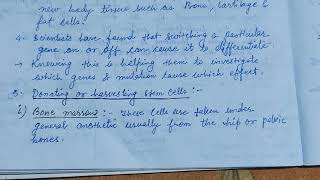 new body tissue such as Bone, cartilage &
fat cells.
4- Scientists have found that switching a particular
gene on or off can cause it to differentiate.
→ Knowing this is helping them to investigate
which genes & mutation cause which effect.
5. Donating or harvesting stem cells :-
i) Bone marrow :- These cells are taken under
general anathetic usually from the ship or pelvic
bones.